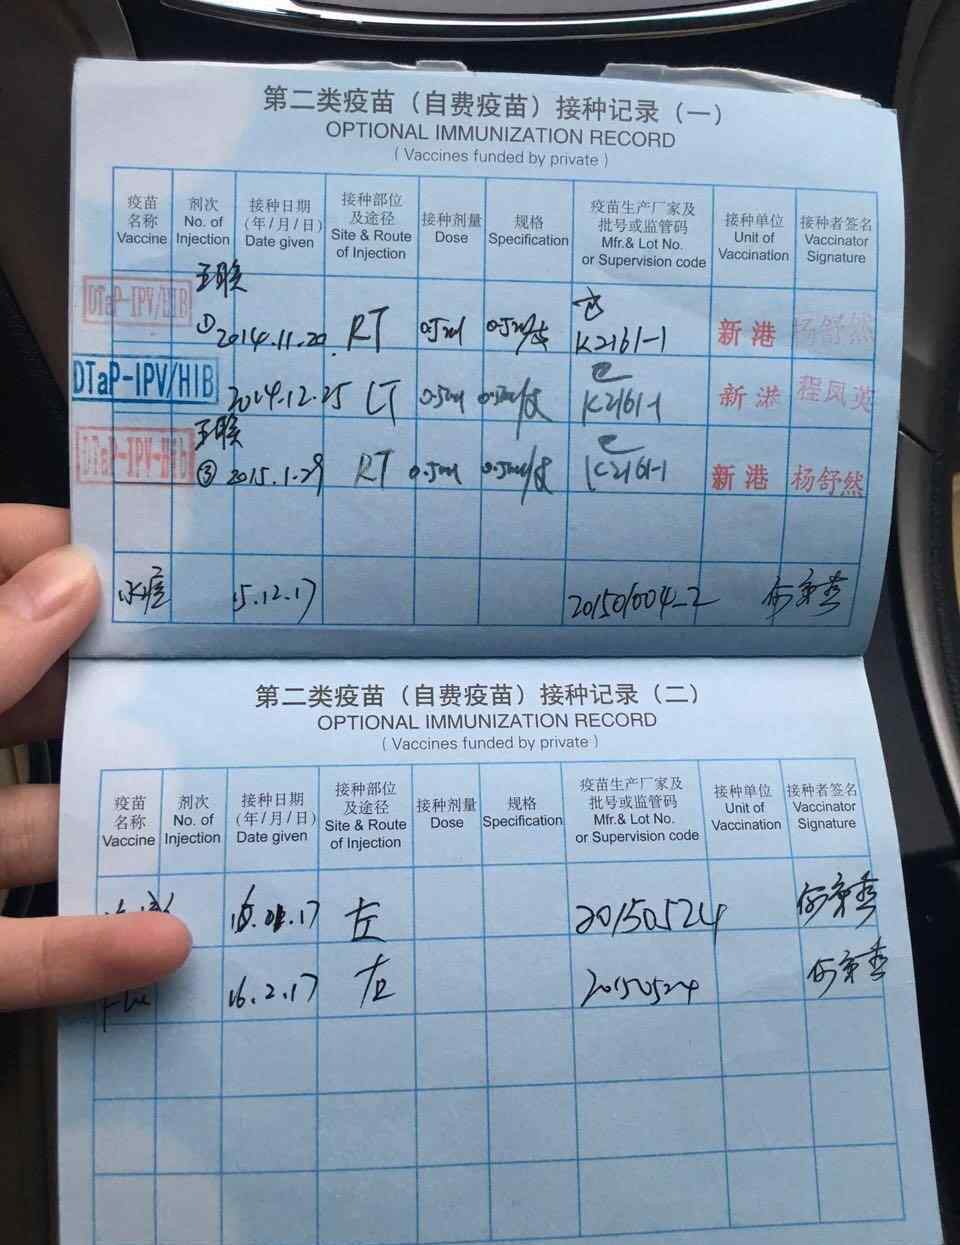 第二类疫苗（自费疫苗）接种记录（一）
OPTIONAL IMMUNIZATION RECORD
( Vaccines funded by private )
疫苗名称 Vaccine 剂次 No. of Injection 接种日期 (年/月/日) Date given 接种部位及途径 Site & Route of Injection 接种剂量 Dose 规格 Specification 疫苗生产厂家及批号或监管码 Mfr.& Lot No. or Supervision code 接种单位 Unit of Vaccination 接种者签名 Vaccinator Signature
DTaP-IPV/HIB ① 2014.11.20. RT 0.5ml 0.5ml/支 K2161-1 新港 杨舒然
DTaP-IPV/HIB 2014.12.25 LT 0.5ml 0.5ml/支 巴 K2161-1 新港 程凤英
DTaP-IPV-Hib ③ 2015.1.29 RT 0.5ml 0.5ml/支 巴 K2161-1 新港 杨舒然
水痘 15.12.17 201501004-2
第二类疫苗（自费疫苗）接种记录（二）
OPTIONAL IMMUNIZATION RECORD
( Vaccines funded by private )
疫苗名称 Vaccine 剂次 No. of Injection 接种日期 (年/月/日) Date given 接种部位及途径 Site & Route of Injection 接种剂量 Dose 规格 Specification 疫苗生产厂家及批号或监管码 Mfr.& Lot No. or Supervision code 接种单位 Unit of Vaccination 接种者签名 Vaccinator Signature
左 20150524
16.2.17 左 20150524